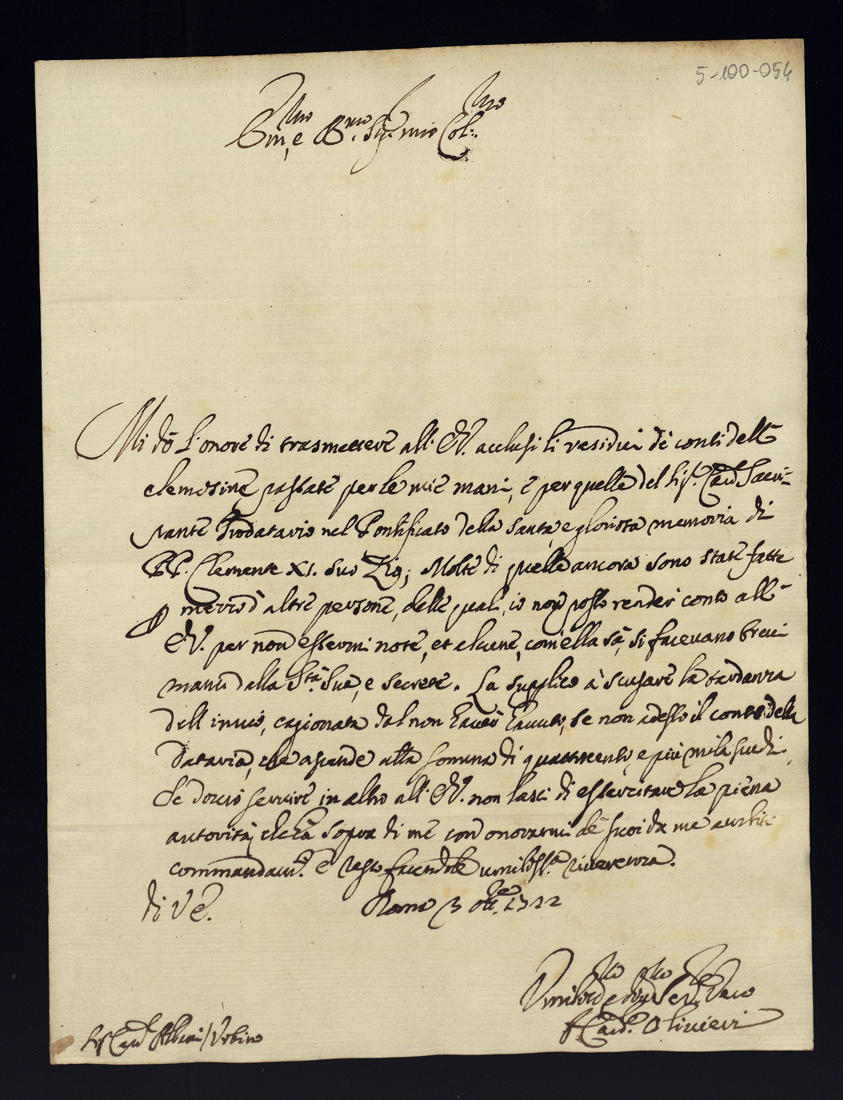 5-100-054
Em.mo e R.mo Sig.re mio Col.mo
Mi dò l'onore di trasmettere all'E.V. acclusi li residui de conti delle
elemosine passate per le mie mani, e per quelle del Sig.r Card. Sacri-
pante Prodatario nel Pontificato della santa, e gloriosa memoria di
PP. Clemente XI. suo Zio; Molte di quelle ancora sono state fatte
altre persone, delle quali, io non posso render conto all'
E.V. per non essermi note, et alcune, com'ella sà, si facevano brevi
manu dalla S.tà Sua, e secrete. La supplico à scusare la tardanza
dell'invio, cagionata dal non haver havuto, se non adesso il conto della
Dataria, che ascende alla somma di quattrocento, e più mila scudi.
Se devo servire in altro all'E.V. non lasci di essercitare la piena
autorità, che hà sopra di me con onorarmi de suoi da me
commandam.ti e resto facendole umiliss.a riverenza.
di V.E. Roma 3 Ott.re 1722
Umiliss.mo e Ser.re
F. Card. Olivieri
Sig. Card. Albani / Urbino